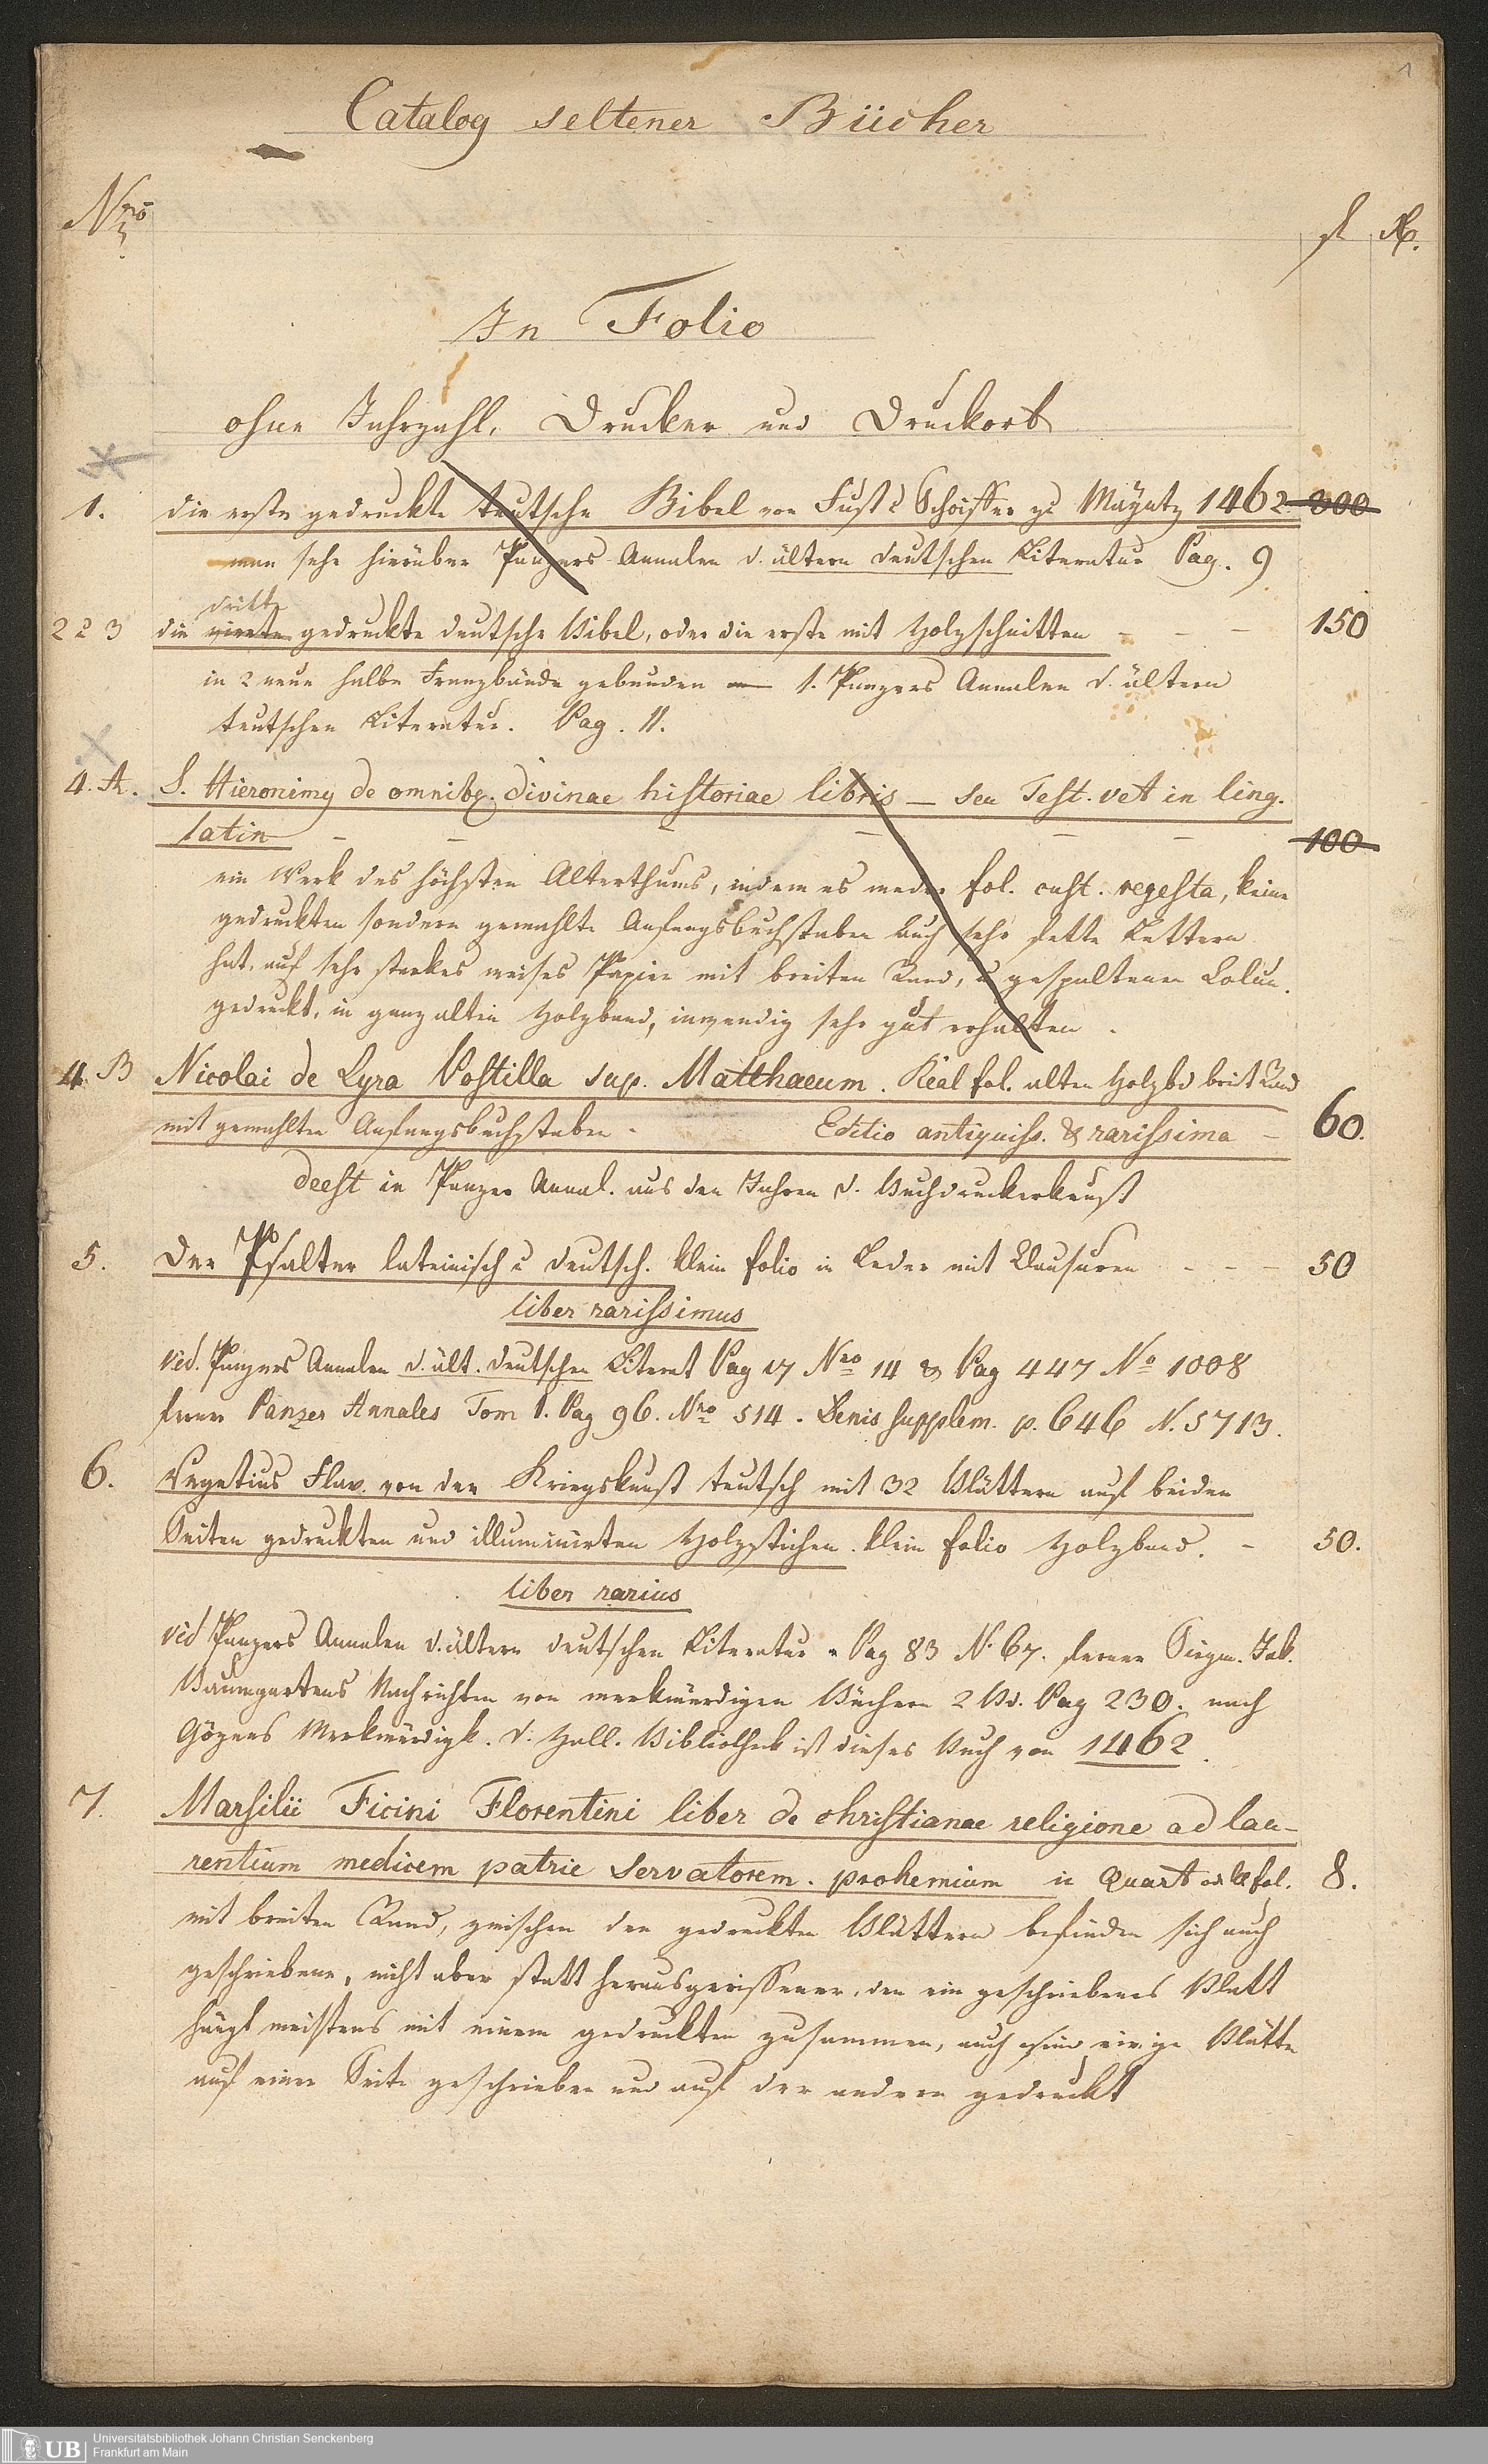 1
Catalog seltener Bücher
Nro
fl Xr.
In Folio
ohne Jahrzahl, Drucker und Druckort
1. die erste gedruckte teutsche Bibel von Fust & Schoiffer zu Maÿntz 1462 800
man sehe hierüber Panzers Annalen d. ältern deutschen Literatur Pag. 9
dritte
2 & 3 die vierte gedruckte deutsche Bibel, oder die erste mit Holzschnitten - - - 150
in 2 neue halbe Franzbände gebunden — 1. Panzers Annalen d. ältern
teutschen Literatur. Pag. 11.
4. A. S. Hieronimy de omnibq. divinae historiae libris — seu Test. vet in ling.
latin - - - - - - 100
ein Werk des höchsten Alterthums, indem es weder fol. cust. regesta, keine
gedruckten sondern gemahlte Anfangsbuchstaben auch sehr fette Lettern
hat, auf sehr starkes weises Papier mit breiten Rand, u gespaltenen Colum.
gedruckt, in ganz alten Holzband, inwendig sehr gut erhalten.
4. B Nicolai de Lyra Postilla sup. Matthaeum. Real fol. alten Holzbd breit Rand
mit gemahlten Anfangsbuchstaben - Editio antiquiss. & rarissima - 60.
deest in Panzer Annal. aus den Jahren d. Buchdruckerkunst
5. Der Psalter lateinisch u deutsch. klein folio in Leder mit Clausuren - - - 50
liber rarissimus
vid. Panzers Annalen d. ält. deutschen Literat Pag 17 Nro 14 & Pag 447 No 1008
ferner Panzer Annales Tom 1. Pag 96. Nro 514. Denis supplem. p. 646 N. 5713.
6. Vegetius Flav. von der Kriegskunst teutsch mit 32 Blättern auf beiden
Seiten gedruckten und illuminirten Holzstichen. klein folio Holzband. - 50.
liber rarius
vid Panzers Annalen d. ältern deutschen Literatur Pag 83 N. 67. ferner Sigm. Jak.
Baumgartens Nachrichten von merkwürdigen Büchern 2 Bd. Pag 230. nach
Gözens Merkwürdigk. d. Hall. Bibliothek ist dieses Buch von 1462.
7. Marsilii Ficini Florentini liber de christianae religione ad lau-
rentium medicem patrie servatorem. prohemium in Quart od kl fol. 8.
mit breiten Rand, zwischen den gedruckten Blättern befinden sich auch
geschriebene, nicht aber statt herausgerissener, den ein geschriebenes Blatt
hängt meistens mit einem gedruckten zusammen, auch sind einige Blätter
auf einer Seite geschrieben und auf der andern gedruckt
UB Universitätsbibliothek Johann Christian Senckenberg
Frankfurt am Main